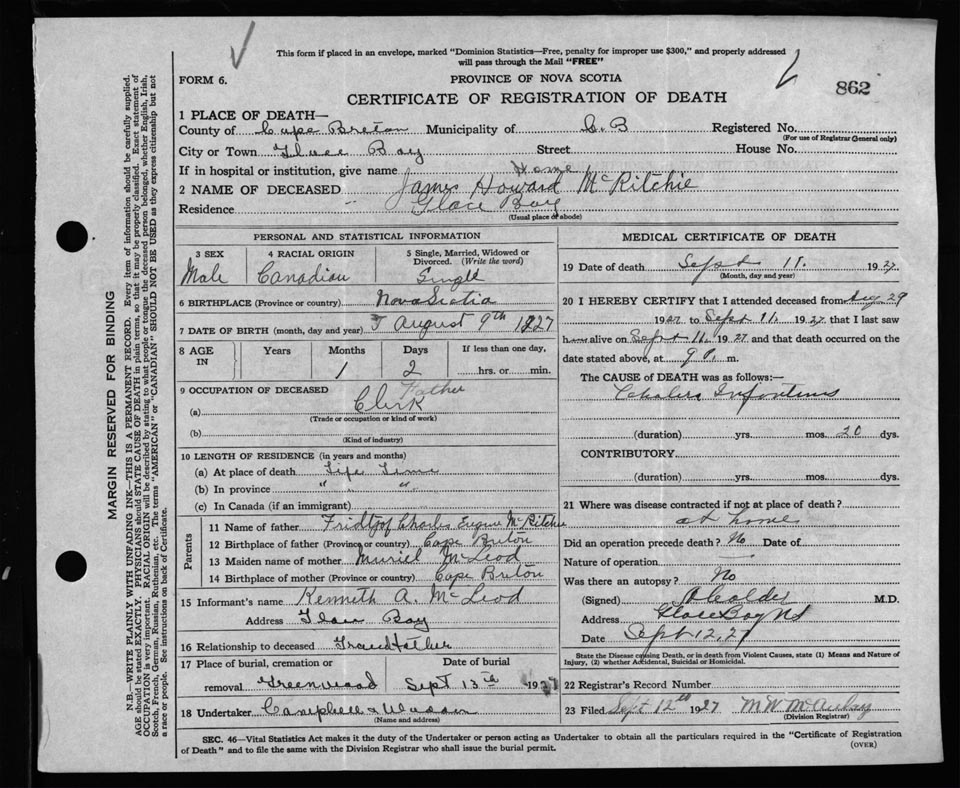 This form if placed in an envelope, marked "Dominion Statistics—Free, penalty for improper use $300," and properly addressed
will pass through the Mail "FREE"
FORM 6.
PROVINCE OF NOVA SCOTIA
862
CERTIFICATE OF REGISTRATION OF DEATH
1 PLACE OF DEATH—
County of Cape Breton Municipality of C.B Registered No.
(For use of Registrar General only)
City or Town Glace Bay Street House No.
If in hospital or institution, give name Home
2 NAME OF DECEASED James Howard McRitchie
Residence Glace Bay
(Usual place of abode)
PERSONAL AND STATISTICAL INFORMATION
3 SEX 4 RACIAL ORIGIN 5 Single, Married, Widowed or
Divorced. (Write the word)
Male Canadian Single
6 BIRTHPLACE (Province or country) Nova Scotia
7 DATE OF BIRTH (month, day and year) August 9th 1927
8 AGE IN Years Months Days If less than one day,
1 2 hrs. or min.
9 OCCUPATION OF DECEASED Father
(a) Clerk
(Trade or occupation or kind of work)
(b)
(Kind of industry)
10 LENGTH OF RESIDENCE (in years and months)
(a) At place of death Life Time
(b) In province " "
(c) In Canada (if an immigrant)
Parents
11 Name of father Fridtjof Charles Eugene McRitchie
12 Birthplace of father (Province or country) Cape Breton
13 Maiden name of mother Muriel McLeod
14 Birthplace of mother (Province or country) Cape Breton
15 Informant's name Kenneth A. McLeod
Address Glace Bay
16 Relationship to deceased Grandfather
17 Place of burial, cremation or Date of burial
removal Greenwood Sept 13th 1927
18 Undertaker Campbell &
(Name and address)
MEDICAL CERTIFICATE OF DEATH
19 Date of death Sept 11. 1927
(Month, day and year)
20 I HEREBY CERTIFY that I attended deceased from Aug 29
1927 to Sept 11, 1927 that I last saw
alive on Sept 11, 1927 and that death occurred on the
date stated above, at 9 m.
The CAUSE OF DEATH was as follows:—
Cholera Infantum
(duration) yrs. mos. 20 dys.
CONTRIBUTORY
(duration) yrs. mos. dys.
21 Where was disease contracted if not at place of death?
at home
Did an operation precede death? No Date of
Nature of operation
Was there an autopsy? No
(Signed) M.D.
Address Glace Bay NS
Date Sept 12, 27
State the Disease causing Death, or in death from Violent Causes, state (1) Means and Nature of
Injury, (2) whether Accidental, Suicidal or Homicidal.
22 Registrar's Record Number
23 Filed Sept 12th 1927 M W McAulay
(Division Registrar)
SEC. 46—Vital Statistics Act makes it the duty of the Undertaker or person acting as Undertaker to obtain all the particulars required in the "Certificate of Registration
of Death" and to file the same with the Division Registrar who shall issue the burial permit.
(OVER)
MARGIN RESERVED FOR BINDING
N.B.—WRITE PLAINLY WITH UNFADING INK—THIS IS A PERMANENT RECORD. Every item of information should be carefully supplied.
AGE should be stated EXACTLY. PHYSICIANS should STATE CAUSE OF DEATH in plain terms, so that it may be properly classified. Exact statement of
OCCUPATION is very important. RACIAL ORIGIN will be described by stating to what people or tongue the deceased person belonged, whether English, Irish,
Scotch, French, German, Russian, Ruthenian, etc. The terms "AMERICAN" or "CANADIAN" SHOULD NOT BE USED as they express citizenship but not
a race or people. See instructions on back of Certificate.